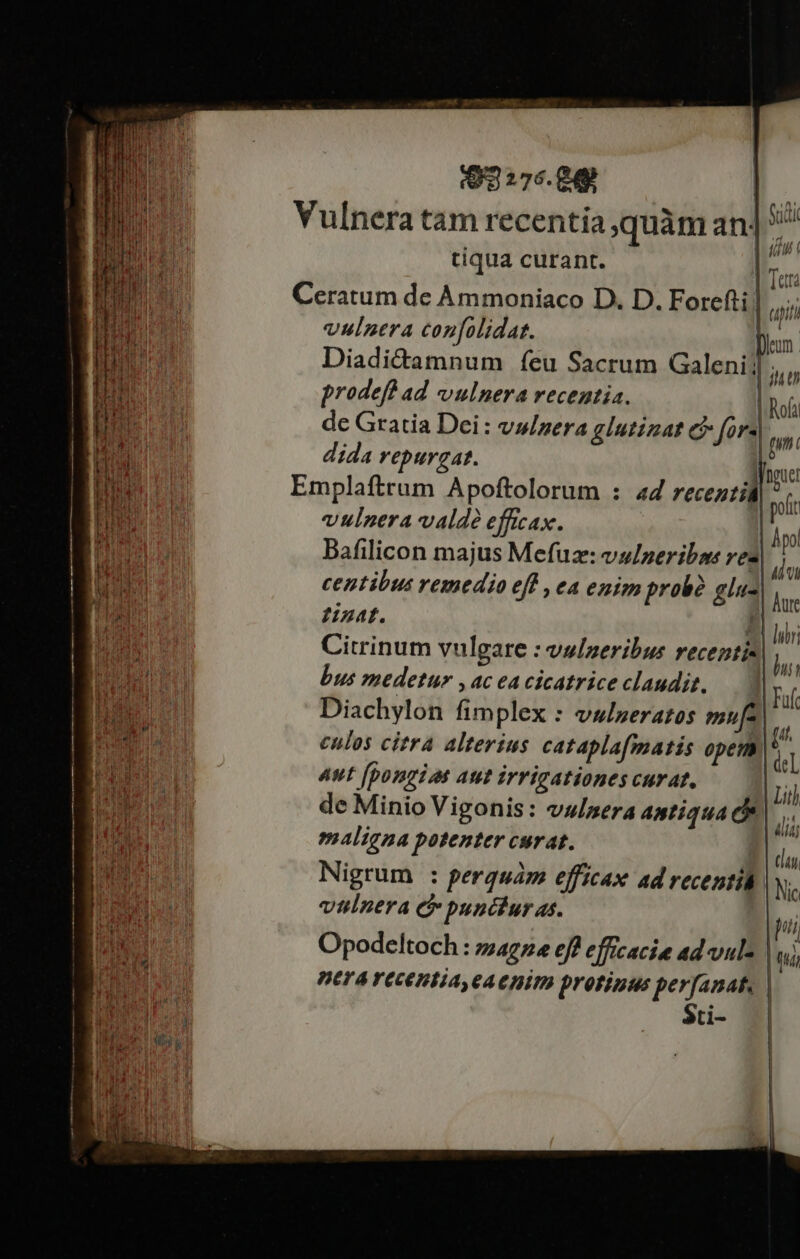 276.
Vulnera tam recentia,quàm an-
tiqua curant.
Ceratum de Ammoniaco D. D. Foreſti:
vulnera conſolidat.
Diadictamnum ſeu Sacrum Galeni:
prodeſt ad vulnera recentia.
de Gratia Dei: vulnera glutinat & ſor-
dida repurgat.
Emplaſtrum Apoſtolorum : ad recentia
vulnera valdè efficax.
Baſilicon majus Meſuæ: vulneribus re-
centibus remedio eſt , ea enim probè glu-
tinat.
Citrinum vulgare : vulneribus recenti-
bus medetur , ac ea cicatrice claudit.
Diachylon ſimplex : vulneratos muſ-
culos citra alterius cataplaſmatis opem
aut ſpongias aut irrigationes curat.
de Minio Vigonis: vulnera antiqua &
maligna potenter curat.
Nigrum : perquàm efficax ad recentia
vulnera & puncturas.
Opodeltoch : magnæ eſt efficaciæ ad vul-
nera recentia,ea enim protinus perſanat.
Sti-